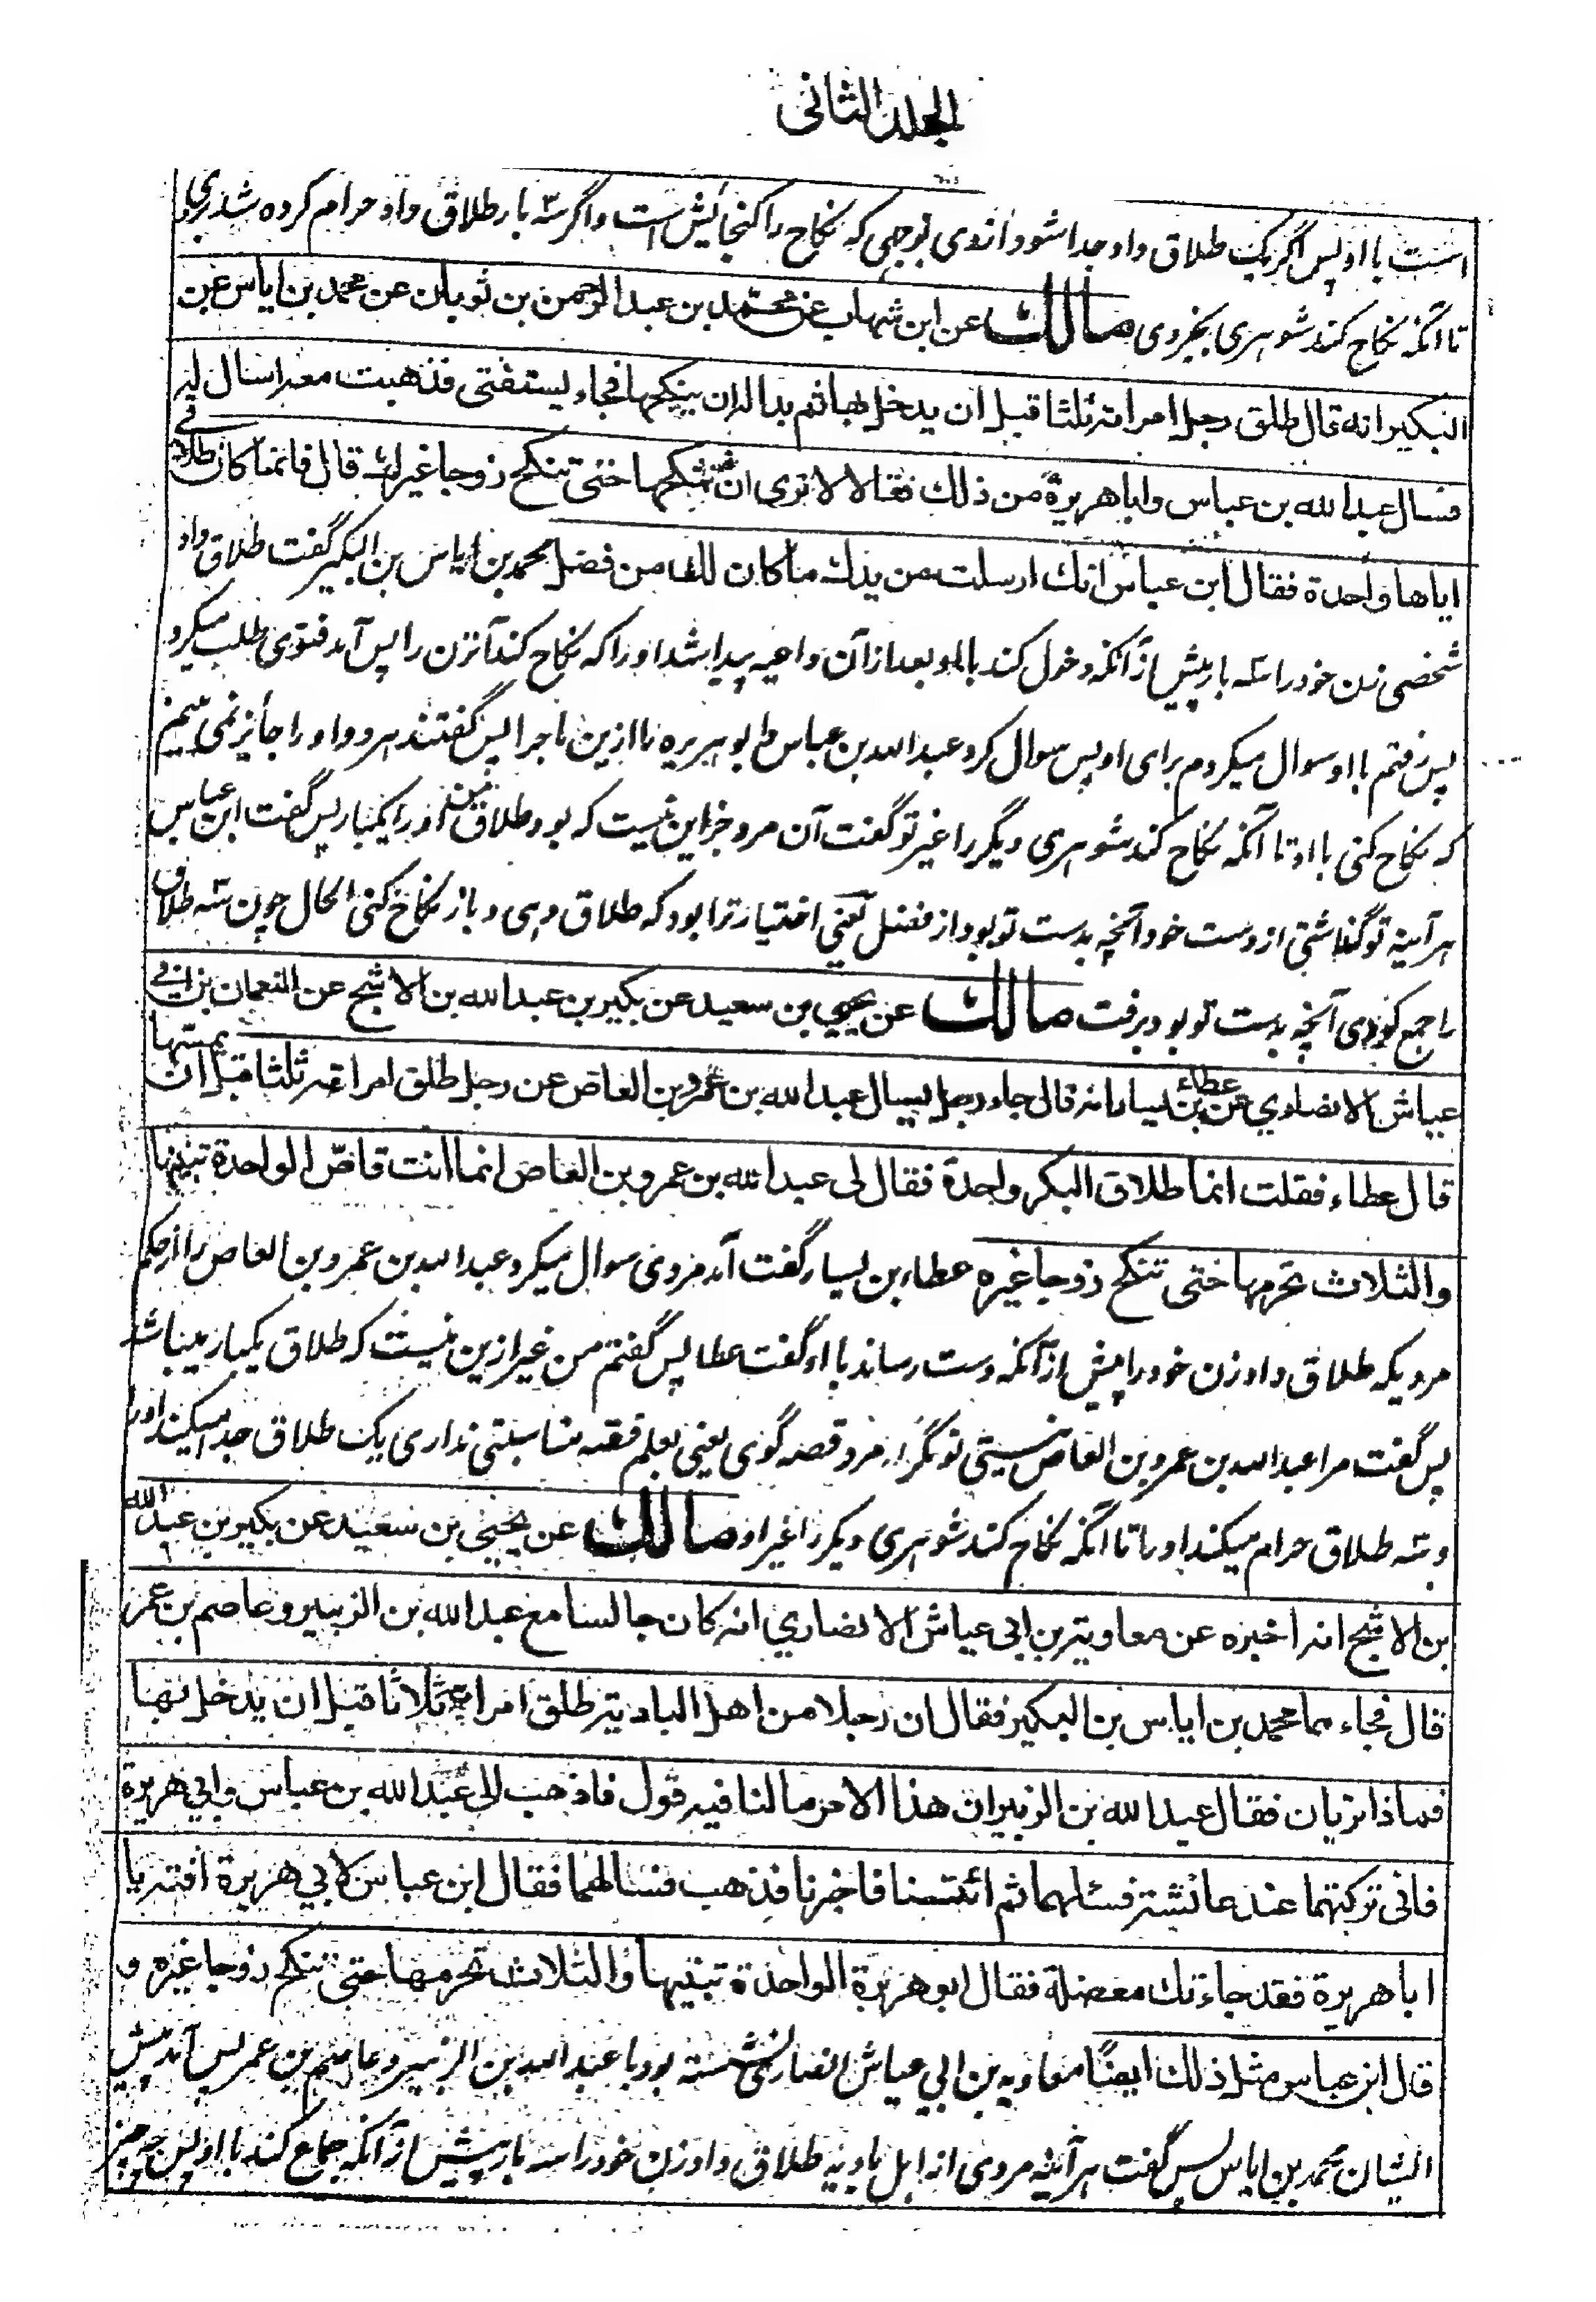 الجلد الثانی
است با او پس اگر یک طلاق داد جدا شود از وی بوجهی که نکاح را گنجائیش است و اگر سه بار طلاق داد حرام کرده شد بروی
تا آنکه نکاح کند شوهری بجز وی مالك عن ابن شهاب عن محمد بن عبد الرحمن بن ثوبان عن محمد بن ایاس عن
البکیر انه قال طلق رجل امراته ثلثا قبل ان یدخل بها ثم بدا له ان ینکحها فجاء یستفتی فذهبت معه اسال له
فسال عبد الله بن عباس و ابا هریرة من ذلك فقالا لا نری ان تنکحها حتی تنکح زوجا غیرك قال فانما کان طلاقی
ایاها واحدة فقال ابن عباس انك ارسلت من یدك ما کان لك من فضل محمد بن ایاس بن البکیر گفت طلاق داد
شخصی زن خود را سه بار پیش از آنکه دخول کند با او بعد از آن داعیه پیدا شد او را که نکاح کند آنزن را پس آمد فتوی طلب میکرد
پس رفتم با او سوال میکردم برای او پس سوال کرد عبد الله بن عباس و ابو هریره را ازین ماجرا پس گفتند هر دو او را جایز نمی بینم
که نکاح کنی با او تا آنکه نکاح کند شوهری دیگر را غیر تو گفت آن مرد جز این نیست که بود طلاق من او را یکبار پس گفت ابن عباس
هر آینه تو گذاشتی از دست خود آنچه بدست تو بود از فضل یعنی اختیار ترا بود که طلاق دهی و باز نکاح کنی الحال چون سه طلاق
را جمع کردی آنچه بدست تو بود برفت مالك عن یحیی بن سعید عن بکیر بن عبد الله بن الاشج عن النعمان بن ابی
عیاش الانصاری عن عطاء بن یسار انه قال جاء رجل یسال عبد الله بن عمرو بن العاص عن رجل طلق امراته ثلثا قبل ان یمسها
قال عطاء فقلت انما طلاق البکر واحدة فقال لی عبد الله بن عمرو بن العاص انما انت قاص الواحدة تبینها
والثلاث تحرمها حتی تنکح زوجا غیره عطاء بن یسار گفت آمد مردی سوال میکرد عبد الله بن عمرو بن العاص را از حکم
مردیکه طلاق داد زن خود را پیش از آنکه دست رساند با او گفت عطا پس گفتم من غیر ازین نیست که طلاق یکبار میباشد
پس گفت مرا عبد الله بن عمرو بن العاص نیستی تو مگر مرد قصه گوی یعنی بعلم فقه مناسبتی نداری یک طلاق جدا میکند او را
و سه طلاق حرام میکند او را تا آنکه نکاح کند شوهری دیگر را غیر او مالك عن یحیی بن سعید عن بکیر بن عبد الله
بن الاشج انه اخبره عن معاویة بن ابی عیاش الانصاری انه کان جالسا مع عبد الله بن الزبیر و عاصم بن عمر
قال فجاءهما محمد بن ایاس بن البکیر فقال ان رجلا من اهل البادیة طلق امراته ثلاثا قبل ان یدخل بها
فماذا تریان فقال عبد الله بن الزبیر ان هذا الامر ما لنا فیه قول فاذهب الی عبد الله بن عباس و ابی هریرة
فانی ترکتهما عند عائشة فسئلهما ثم ائتنا فاخبرنا فذهب فسالهما فقال ابن عباس لابی هریرة افته یا
ابا هریرة فقد جاءتك معضلة فقال ابو هریرة الواحدة تبینها والثلاث تحرمها حتی تنکح زوجا غیره و
قال ابن عباس مثل ذلك ایضًا معاویه بن ابی عیاش انصاری نشسته بود با عبد الله بن الزبیر و عاصم بن عمر پس آمد پیش
ایشان محمد بن ایاس پس گفت هر آئینه مردی از اهل بادیه طلاق داد زن خود را سه بار پیش از آنکه جماع کند با او پس چه چیز